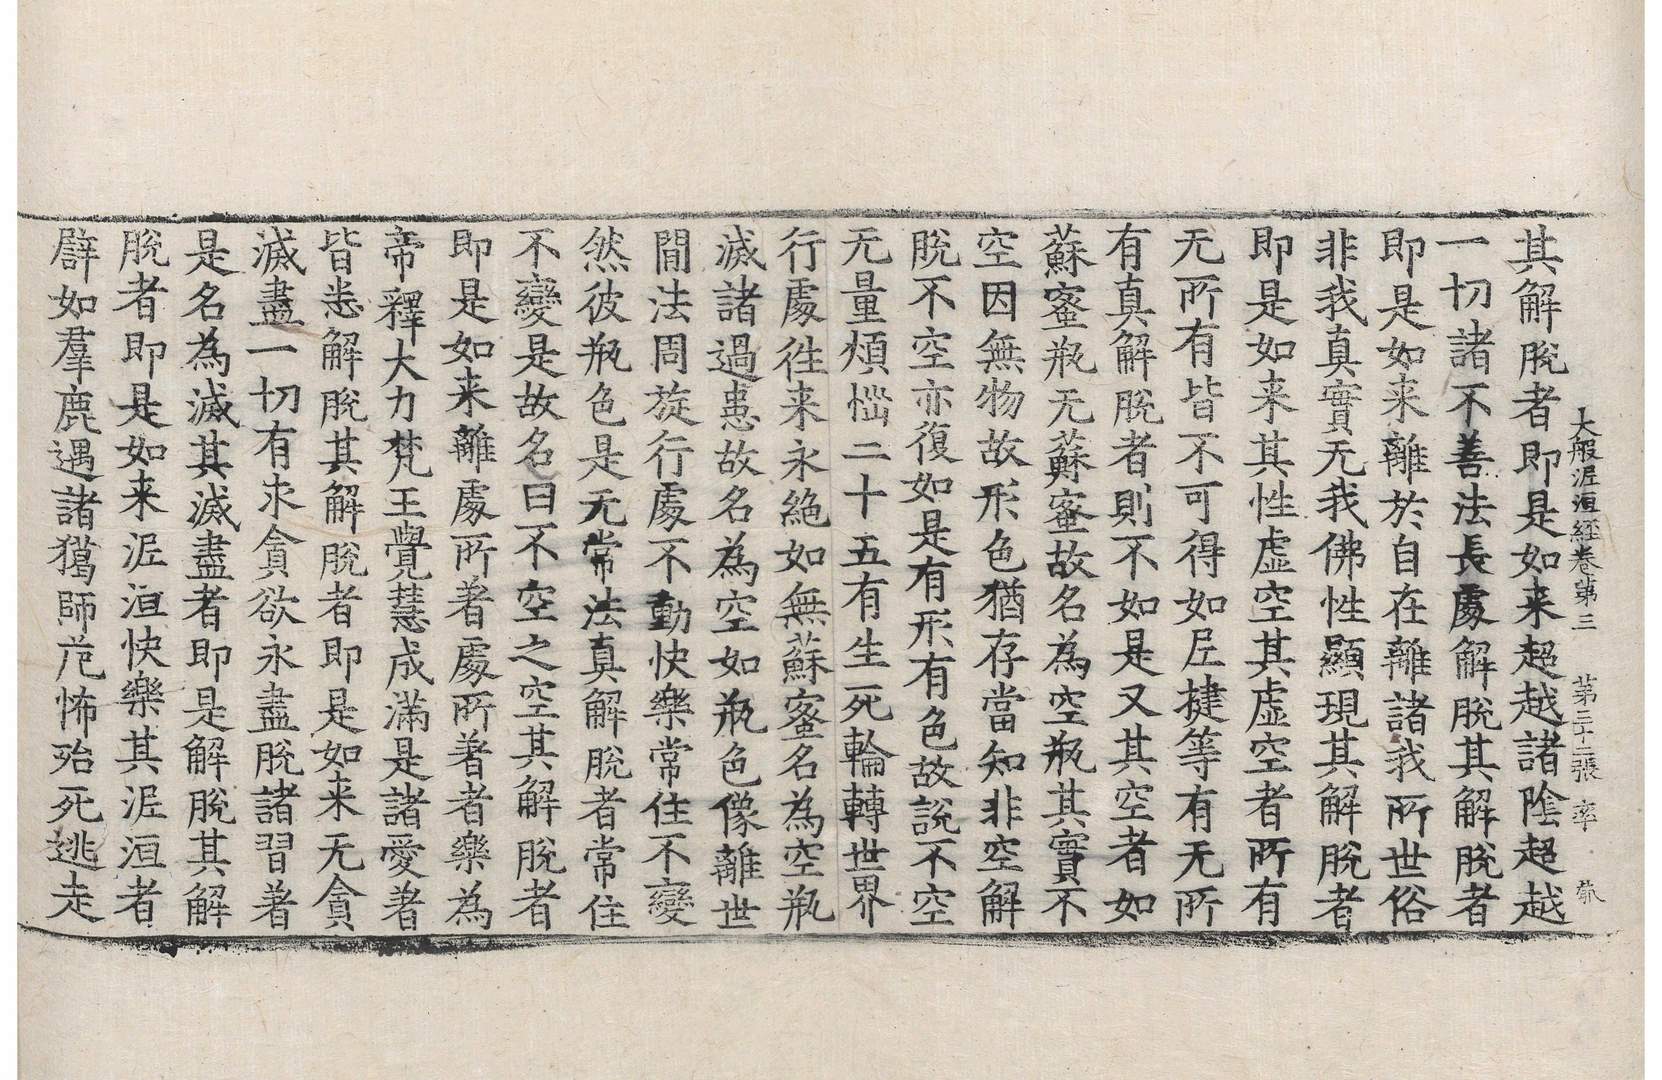 大般泥洹經卷第三 第二十二張 率
其解脫者即是如来超越諸陰超越
一切諸不善法長處解脫其解脫者
即是如来離於自在離諸我所世俗
非我真實无我佛性顯現其解脫者
即是如来其性虛空其虛空者所有
无所有皆不可得如尼揵等有无所
有真解脫者則不如是又其空者如
蘇蜜瓶无蘇蜜故名為空瓶其實不
空因無物故形色猶存當知非空解
脫不空亦復如是有形有色故說不空
无量煩惱二十五有生死輪轉世界
行處徃来永絕如無蘇蜜名為空瓶
滅諸過患故名為空如瓶色像離世
間法周旋行處不動快樂常住不變
然彼瓶色是无常法真解脫者常住
不變是故名曰不空之空其解脫者
即是如来離處所著處所著者樂為
帝釋大力梵王覺慧成滿是諸愛著
皆悉解脫其解脫者即是如来无貪
滅盡一切有求貪欲永盡脫諸習著
是名為滅其滅盡者即是解脫其解
脫者即是如来泥洹快樂其泥洹者
譬如羣鹿遇諸獦師㤥怖殆死逃走